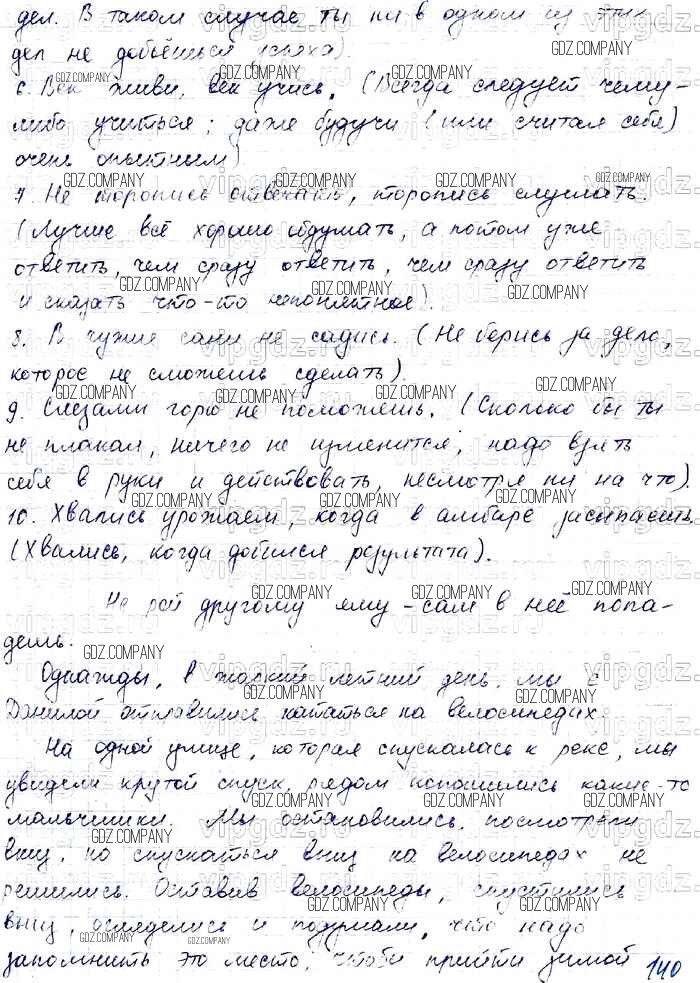 дел. В таком случае ты ни в одном из этих
дел не добьёшься успеха).
6. Век живи, век учись. (Всегда следует чему-
либо учиться; даже будучи (или считая себя)
очень опытным)
7. Не торопись отвечать, торопись слушать.
(Лучше всё хорошо обдумать, а потом уже
ответить, чем сразу ответить, чем сразу ответить
и сказать что-то непонятное).
8. В чужие сани не садись. (Не берись за дело,
которое не сможешь сделать).
9. Слезами горю не поможешь. (Сколько бы ты
не плакал, ничего не изменится, надо взять
себя в руки и действовать, несмотря ни на что).
10. Хвались урожаем, когда в амбаре засыпаешь.
(Хвались, когда добился результата).
Не рой другому яму - сам в неё попа-
дешь.
Однажды, в жаркий летний день, мы с
Данилой отправились кататься на велосипедах.
На одной улице, которая спускалась к реке, мы
увидели крутой спуск, рядом копошились какие-то
мальчишки. Мы остановились, посмотрели
вниз, но спускаться вниз на велосипедах не
решились. Оставив велосипеды, спустились
вниз, огляделись и подумали, что надо
запомнить это место, чтобы прийти зимой
140